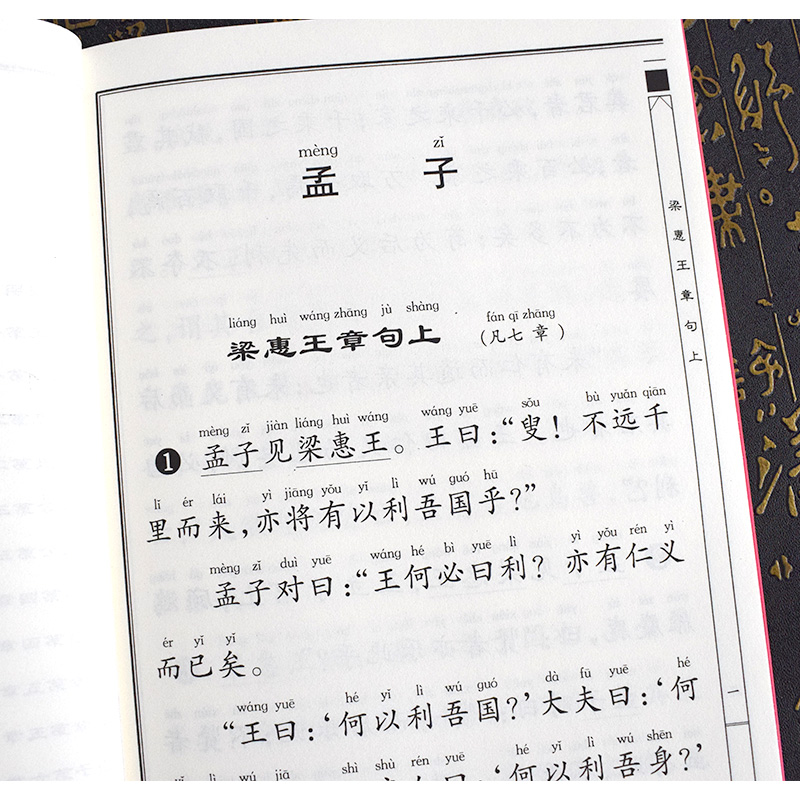 mèng zǐ
孟 子
liáng huì wáng zhāng jù shàng fán qī zhāng
梁惠王章句上 （凡七章）
mèng zǐ jiàn liáng huì wáng wáng yuē sǒu bù yuǎn qiān
❶ 孟子见梁惠王。王曰：“叟！不远千
lǐ ér lái yì jiāng yǒu yǐ lì wú guó hū
里而来，亦将有以利吾国乎？”
mèng zǐ duì yuē wáng hé bì yuē lì yì yǒu rén yì
孟子对曰：“王何必曰利？亦有仁义
ér yǐ yǐ
而已矣。
wáng yuē hé yǐ lì wú guó dà fū yuē hé
“王曰：‘何以利吾国？’大夫曰：‘何
yǐ lì wú jiā shì shù rén yuē hé yǐ lì wú shēn
‘何以利吾身？’
梁惠王章句上
一